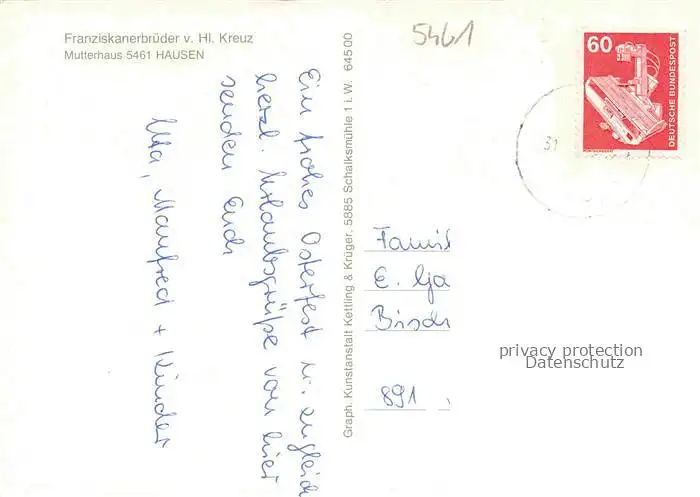 Franziskanerbrüder v. Hl. Kreuz
Mutterhaus 5461 HAUSEN
5461
60
DEUTSCHE BUNDESPOST
31
Ein frohes Osterfest u. zugleich
herzl. Urlaubsgrüße von hier
senden Euch
Uta, Manfred + Kinder
Graph. Kunstanstalt Kettling & Krüger, 5885 Schalksmühle 1 i. W. 64500
Famil
E.
Bisch
891
privacy protection
Datenschutz